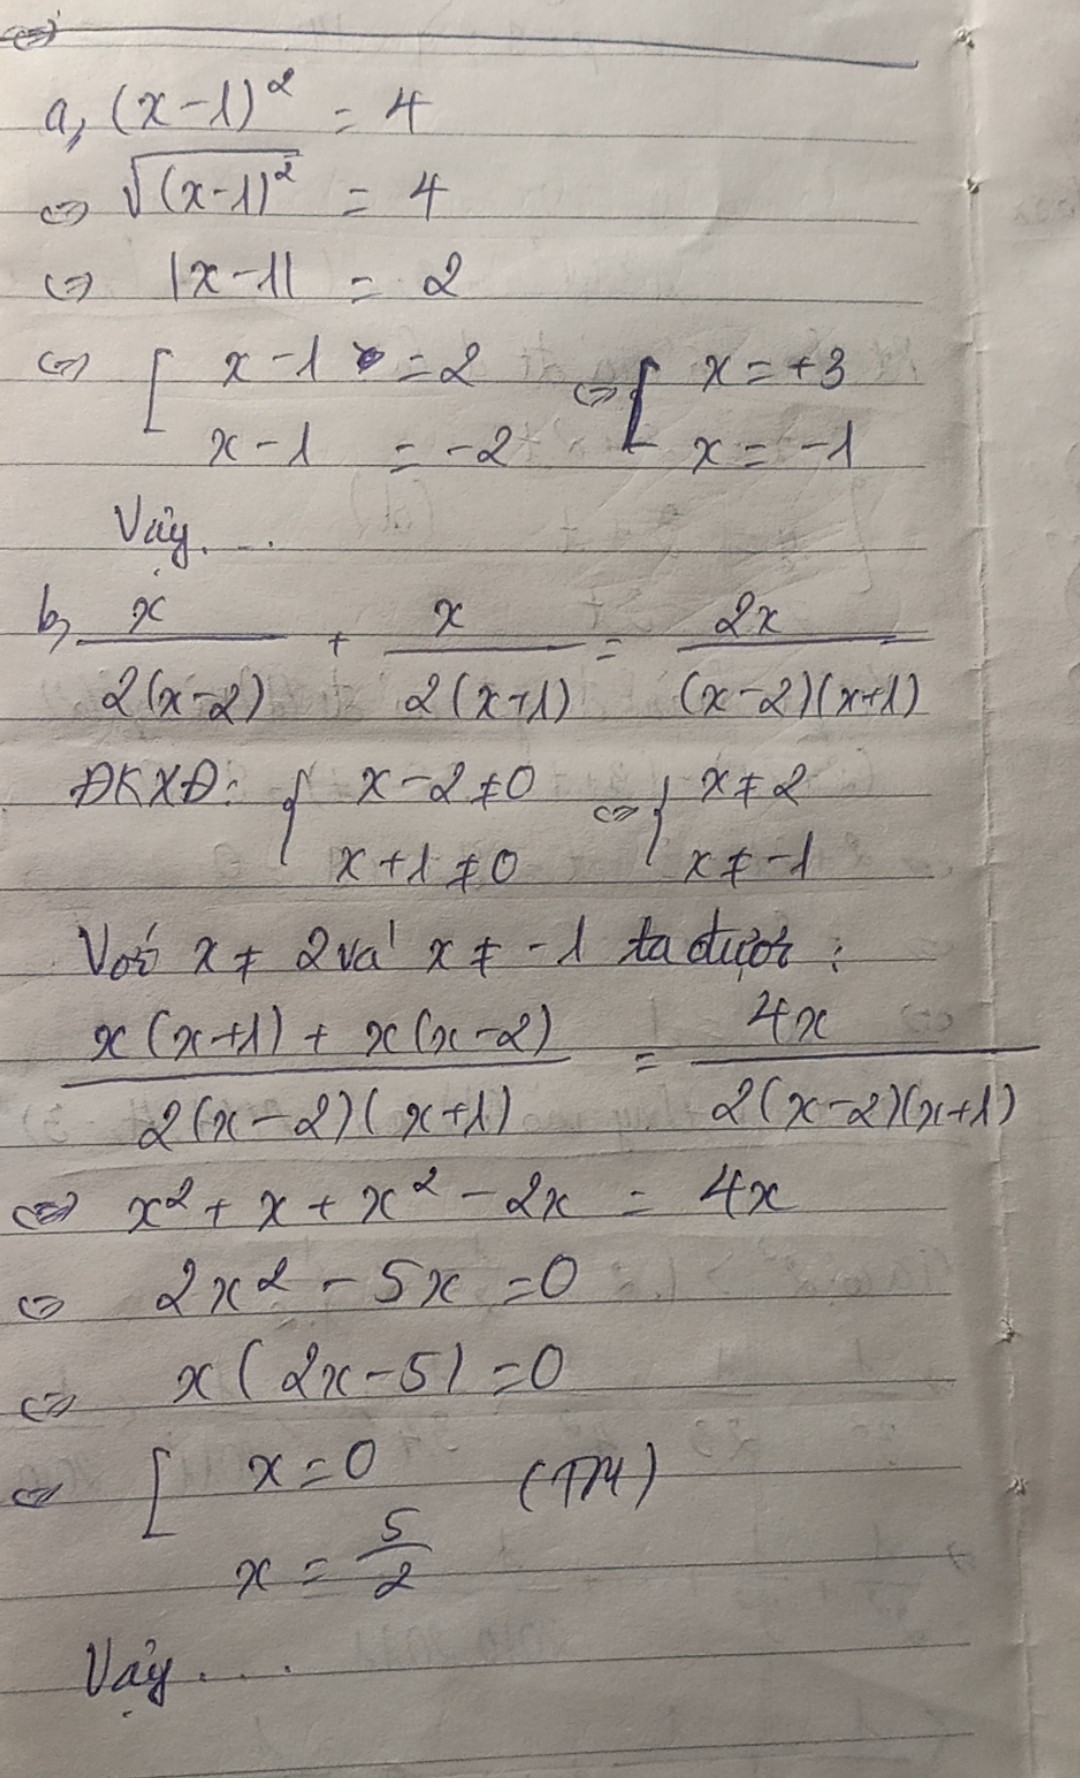 a, (x-1)² = 4
⇔ √(x-1)² = 4
⇔ |x-1| = 2
⇔ [ x-1 = 2 ⇔ [ x = +3
x-1 = -2 x = -1
Vậy....
b, x/2(x-2) + x/2(x+1) = 2x/(x-2)(x+1)
ĐKXĐ: { x-2≠0 ⇔ { x≠2
x+1≠0 x≠-1
Với x ≠ 2 và x ≠ -1 ta được :
x(x+1) + x(x-2)/2(x-2)(x+1) = 4x/2(x-2)(x+1)
⇔ x² + x + x² - 2x = 4x
⇔ 2x² - 5x = 0
⇔ x(2x-5) = 0
⇔ [ x = 0 (TM)
x = 5/2
Vậy....